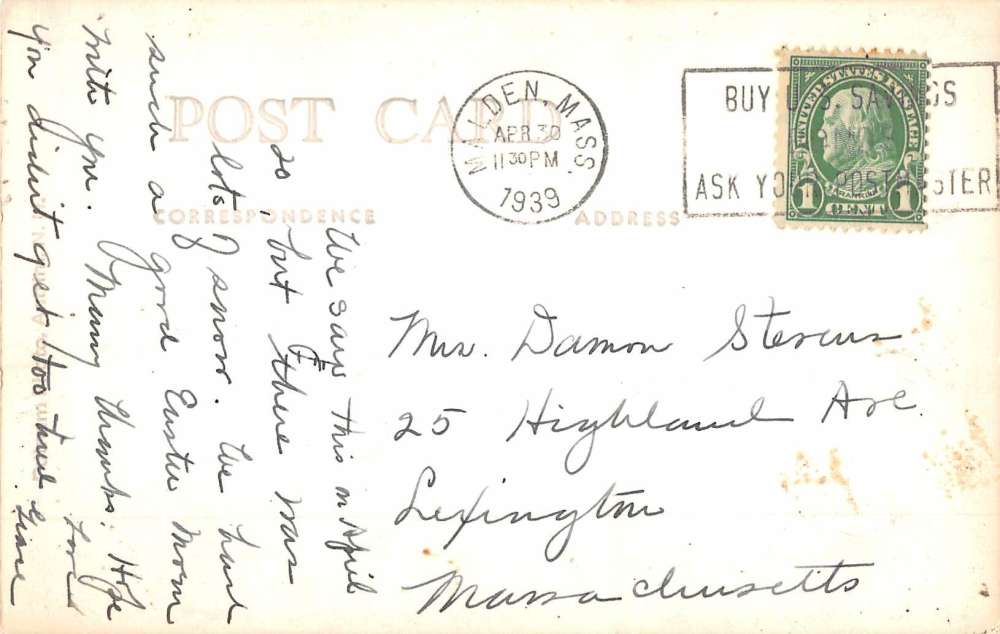 POST CARD
CORRESPONDENCE
ADDRESS
MALDEN, MASS.
APR 30
11 30 PM
1939
BUY U.S. SAVINGS
ASK YOUR POSTMASTER
UNITED STATES POSTAGE
FRANKLIN
1 CENT 1
We saw this on April
20, but there was
lots of snow. We had
such a good Easter Morn
with you. Many thanks. Hope
you didn't get too tired
Love
Grace
Mrs. Damon Stevens
25 Highland Ave.
Lexington
Massachusetts